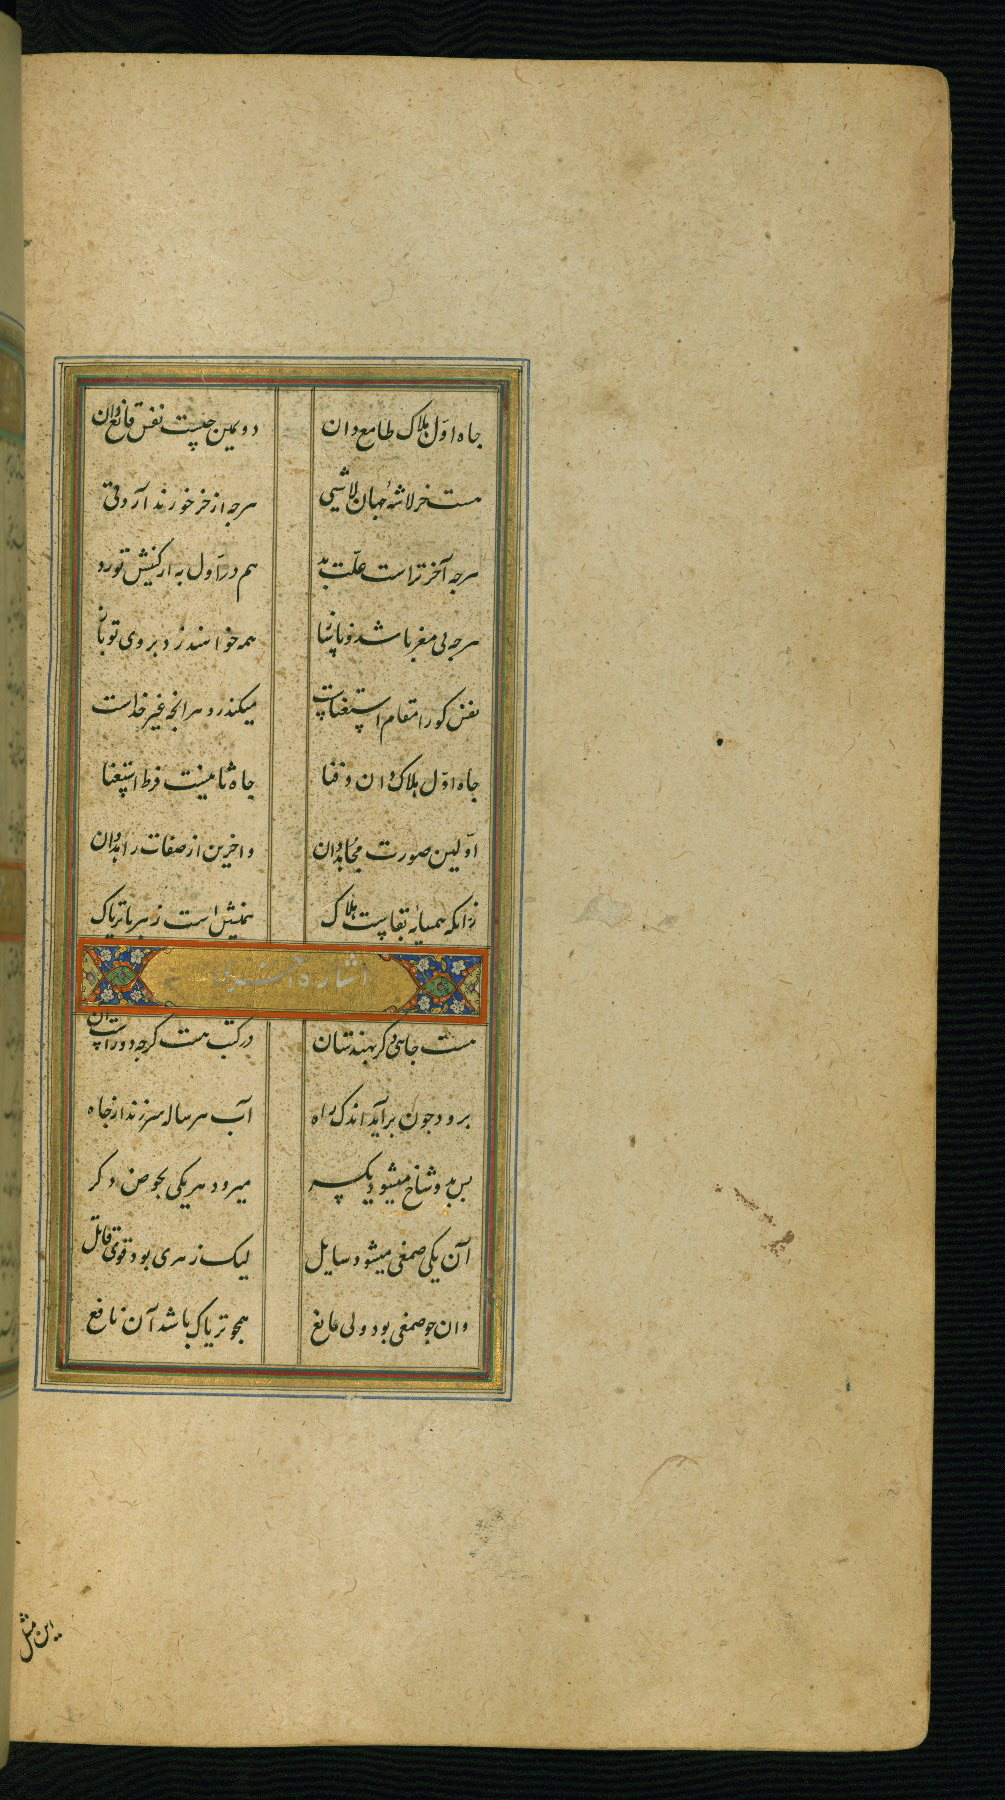 جاه اوّل هلاک طامع دان دویمین چیست نفس قانع دان
هست خر لاشهٔ جهان لاشی هرچه از خر خورند آرد قی
هرچه آخر تراست علّت بد هم در اول به ار کنیش تو رد
هرچه بی مغز باشد و پایه همه خوانند زد بروی تو
نفس کو را مقام استغناست میکذرد هرانچه غیر خداست
جاه اوّل هلاک دان و فنا جاه ثانیست فرط استغنا
اوّلین صورت مجاهد دان واخرین از صفات زاهد دان
زانکه همسایهٔ بقاست هلاک همنیش است زهر باتریاک
اشاره اخری
هست جاهی دکر بهندستان در کتب هست کرچه دورست آن
برود چون برآید اندک راه آب هر ساله سر زند از جاه
بس بدو شاخ میشود یکسر میرود هر یکی بحوض دکر
آن یکی صمغی میشود سایل لیک زهری بود قوی قاتل
وان چو صمغی بود ولی مایع همچو تریاک باشد آن نافع
این مثل